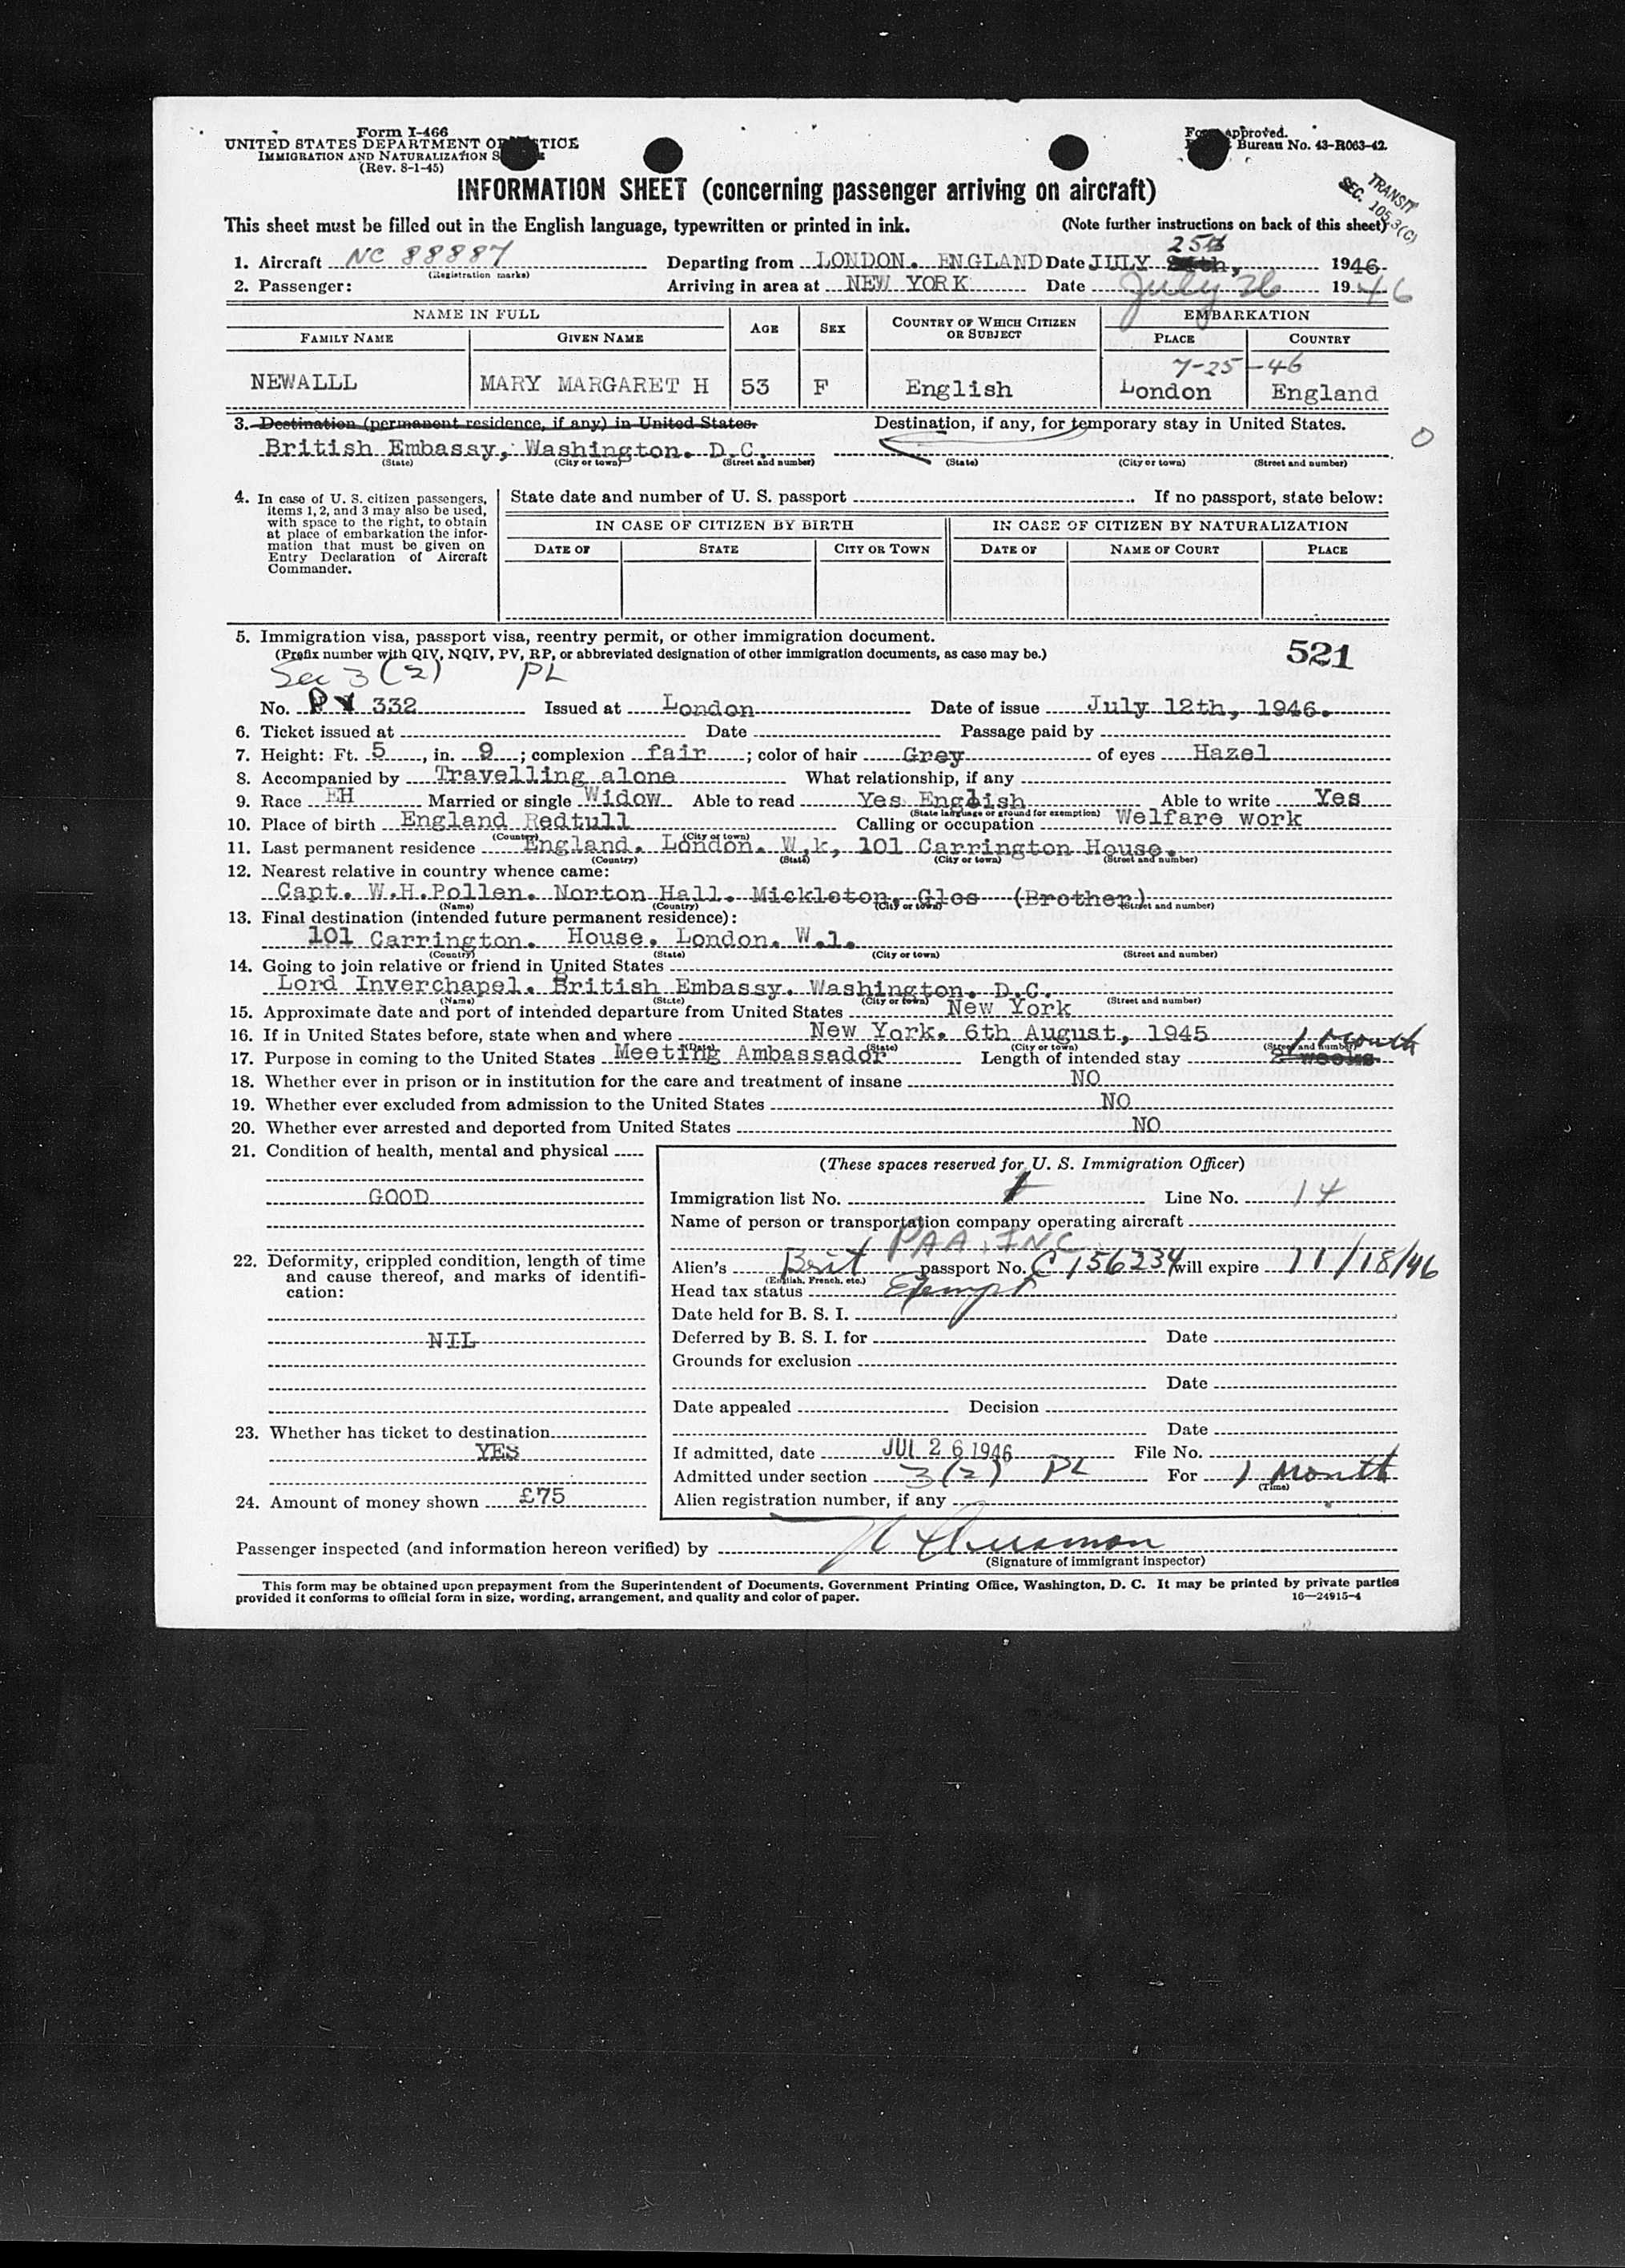 Form I-466
UNITED STATES DEPARTMENT OF JUSTICE
IMMIGRATION AND NATURALIZATION S
(Rev. 8-1-45)
Form approved.
Bureau No. 43-R063-42.
TRANSIT
SEC. 105.3(C)
INFORMATION SHEET (concerning passenger arriving on aircraft)
This sheet must be filled out in the English language, typewritten or printed in ink. (Note further instructions on back of this sheet)
25th
1. Aircraft NC 88887 Departing from LONDON. ENGLAND Date JULY 1946
(Registration marks)
2. Passenger: Arriving in area at NEW YORK Date July 26 1946
NAME IN FULL AGE SEX COUNTRY OF WHICH CITIZEN OR SUBJECT EMBARKATION
FAMILY NAME GIVEN NAME PLACE COUNTRY
7-25-46
NEWALLL MARY MARGARET H 53 F English London England
3. Destination (permanent residence, if any) in United States. Destination, if any, for temporary stay in United States.
British Embassy, Washington. D.C.
(State) (City or town) (Street and number) (State) (City or town) (Street and number)
4. In case of U. S. citizen passengers, items 1, 2, and 3 may also be used, with space to the right, to obtain at place of embarkation the information that must be given on Entry Declaration of Aircraft Commander.
State date and number of U. S. passport If no passport, state below:
IN CASE OF CITIZEN BY BIRTH IN CASE OF CITIZEN BY NATURALIZATION
DATE OF STATE CITY OR TOWN DATE OF NAME OF COURT PLACE
5. Immigration visa, passport visa, reentry permit, or other immigration document.
521
(Prefix number with QIV, NQIV, PV, RP, or abbreviated designation of other immigration documents, as case may be.)
Sec 3 (2) PL
No. PV 332 Issued at London Date of issue July 12th, 1946.
6. Ticket issued at Date Passage paid by
7. Height: Ft. 5, in. 9; complexion fair; color of hair Grey of eyes Hazel
8. Accompanied by Travelling alone What relationship, if any
9. Race EH Married or single Widow Able to read Yes English Able to write Yes
(State language or ground for exemption)
10. Place of birth England Redtull Calling or occupation Welfare work
(Country) (City or town)
11. Last permanent residence England. London. W.k, 101 Carrington House.
(Country) (State) (City or town) (Street and number)
12. Nearest relative in country whence came:
Capt. W.H.Pollen. Norton Hall. Mickleton, Glos (Brother)
(Name) (Country) (City or town) (Street and number)
13. Final destination (intended future permanent residence):
101 Carrington. House. London. W.1.
(Country) (State) (City or town) (Street and number)
14. Going to join relative or friend in United States
Lord Inverchapel. British Embassy. Washington. D.C.
(Name) (State) (City or town) (Street and number)
15. Approximate date and port of intended departure from United States New York
16. If in United States before, state when and where New York. 6th August, 1945
(Date) (State) (City or town) (Street and number)
1 Month
17. Purpose in coming to the United States Meeting Ambassador Length of intended stay weeks
18. Whether ever in prison or in institution for the care and treatment of insane NO
19. Whether ever excluded from admission to the United States NO
20. Whether ever arrested and deported from United States NO
21. Condition of health, mental and physical
GOOD
22. Deformity, crippled condition, length of time and cause thereof, and marks of identification:
NIL
23. Whether has ticket to destination
YES
24. Amount of money shown £75
(These spaces reserved for U. S. Immigration Officer)
Immigration list No. Line No. 14
Name of person or transportation company operating aircraft
PAA, INC
Alien's Brit passport No. C 156234 will expire 11/18/46
(English, French, etc.)
Head tax status Exempt
Date held for B. S. I.
Deferred by B. S. I. for Date
Grounds for exclusion
Date
Date appealed Decision
Date
If admitted, date JUL 26 1946 File No.
Admitted under section 3(2) PL For 1 Month
(Time)
Alien registration number, if any
Passenger inspected (and information hereon verified) by
(Signature of immigrant inspector)
This form may be obtained upon prepayment from the Superintendent of Documents, Government Printing Office, Washington, D. C. It may be printed by private parties
provided it conforms to official form in size, wording, arrangement, and quality and color of paper. 16—24915-4